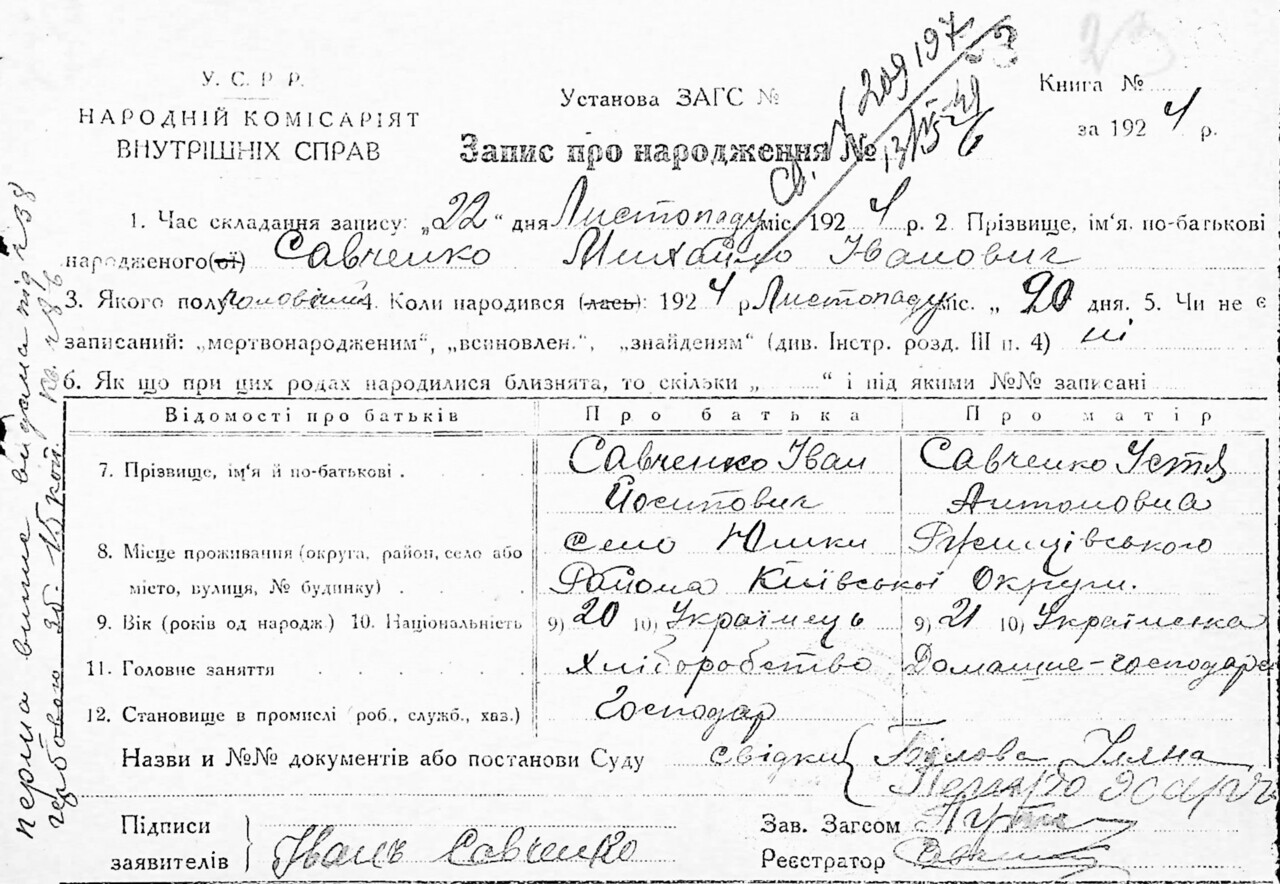 У. С. Р. Р.
НАРОДНІЙ КОМІСАРІЯТ
ВНУТРІШНІХ СПРАВ
Установа ЗАГС №
Книга №
за 1924 р.
Запис про народження №
№ 209197
1. Час складання запису: „22“ дня Листопаду міс. 1924 р. 2. Прізвище, ім'я, по-батькові
народженого(ої) Савченко Михайло Іванович
3. Якого полу чоловічий 4. Коли народився (лась): 1924 р. Листопаду міс. „ 20 дня. 5. Чи не є
записаний: „мертвонародженим“, „всиновлен.“, „знайденям“ (див. Інстр. розд. III п. 4) ні
6. Як що при цих родах народилися близнята, то скільки „ “ і під якими №№ записані
Відомості про батьків Про батька Про матір
7. Прізвище, ім'я й по-батькові . Савченко Іван Савченко Устя
Йосипович Антоновна
8. Місце проживання (округа, район, село або село Юшки Ржищівського
місто, вулиця, № будинку) Района Київської Округи.
9. Вік (років од народж.) 10. Національність 9) 20 10) Українець 9) 21 10) Українка
11. Головне заняття Хліборобство Домашне-господарс
12. Становище в промислі (роб., служб., хаз.) Господар
Назви и №№ документів або постанови Суду свідки Білова Уляна
Підписи
заявителів Іванъ Савченко
Зав. Загсом
Реєстратор
перша витяг видана під № 38
гербового зб. 15 коп.